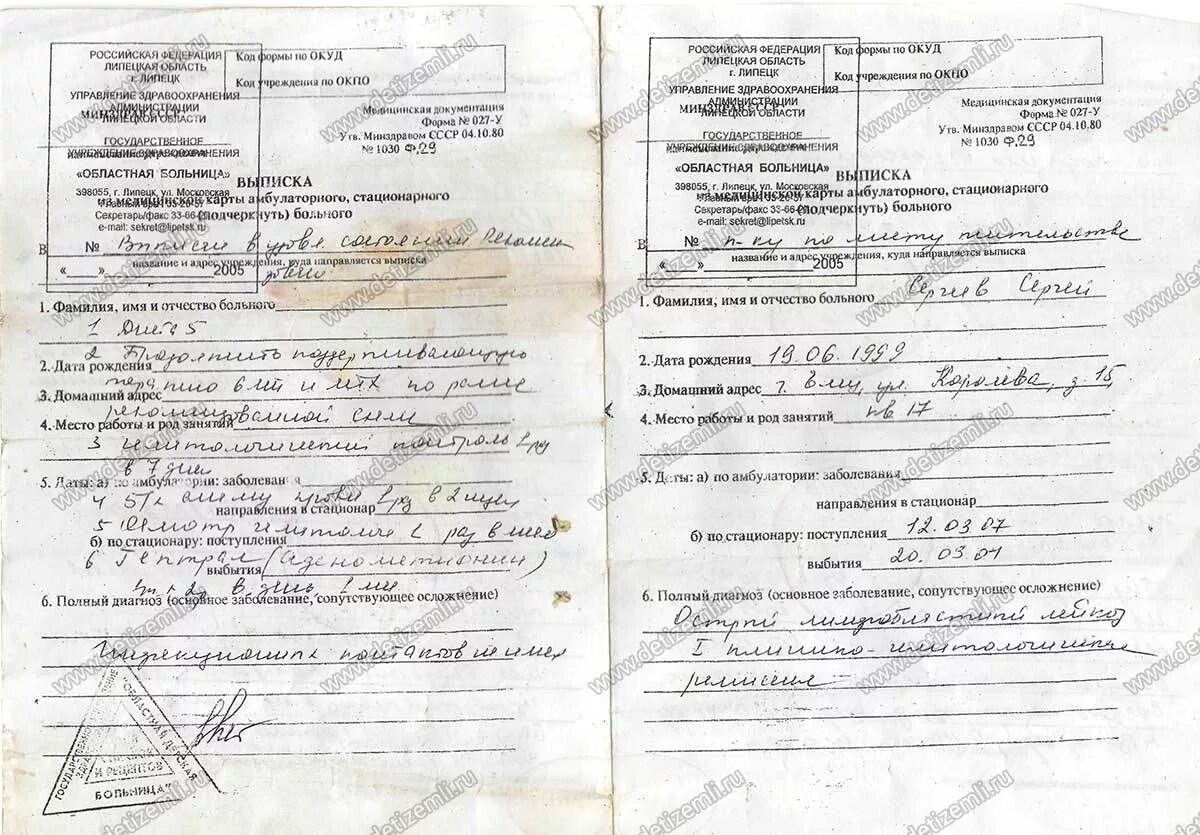 РОССИЙСКАЯ ФЕДЕРАЦИЯ
ЛИПЕЦКАЯ ОБЛАСТЬ
г. ЛИПЕЦК
УПРАВЛЕНИЕ ЗДРАВООХРАНЕНИЯ
АДМИНИСТРАЦИИ
ЛИПЕЦКОЙ ОБЛАСТИ
МИНЗДРАВ СССР
ГОСУДАРСТВЕННОЕ
УЧРЕЖДЕНИЕ ЗДРАВООХРАНЕНИЯ
«ОБЛАСТНАЯ БОЛЬНИЦА»
398055, г. Липецк, ул. Московская
Секретарь/факс 33-66-
e-mail: sekret@lipetsk.ru
Код формы по ОКУД
Код учреждения по ОКПО
Медицинская документация
Форма № 027-У
Утв. Минздравом СССР 04.10.80
№ 1030 ф.29
ВЫПИСКА
из медицинской карты амбулаторного, стационарного
(подчеркнуть) больного
В № Выписан в удовл. состоянии Рекомен
название и адрес учреждения, куда направляется выписка
« » 2005 довано
1. Фамилия, имя и отчество больного
1 Диета 5
2 Продолжить поддерживающую
2. Дата рождения
терапию 6 МП и МТХ по
3. Домашний адрес
рекомендованной
4. Место работы и род занятий
3 Гематологический контроль 1 раз
в 7 дней
5. Даты: а) по амбулатории: заболевания
4 Б/х крови 1 раз в 2
направления в стационар
5 Осмотр 1 раз в мес
б) по стационару: поступления
6 Гептрал (адеметионин)
выбытия
в день 1 мес
6. Полный диагноз (основное заболевание, сопутствующее осложнение)
Инфекционных контактов не имел
"ОБЛАСТНАЯ ДЕТСКАЯ
БОЛЬНИЦА"
И РЕЦЕПТОВ
РОССИЙСКАЯ ФЕДЕРАЦИЯ
ЛИПЕЦКАЯ ОБЛАСТЬ
г. ЛИПЕЦК
УПРАВЛЕНИЕ ЗДРАВООХРАНЕНИЯ
АДМИНИСТРАЦИИ
ЛИПЕЦКОЙ ОБЛАСТИ
МИНЗДРАВ СССР
ГОСУДАРСТВЕННОЕ
УЧРЕЖДЕНИЕ ЗДРАВООХРАНЕНИЯ
«ОБЛАСТНАЯ БОЛЬНИЦА»
398055, г. Липецк, ул. Московская
Секретарь/факс 33-66-
e-mail: sekret@lipetsk.ru
Код формы по ОКУД
Код учреждения по ОКПО
Медицинская документация
Форма № 027-У
Утв. Минздравом СССР 04.10.80
№ 1030 ф.29
ВЫПИСКА
из медицинской карты амбулаторного, стационарного
(подчеркнуть) больного
В № п-ку по месту жительства
название и адрес учреждения, куда направляется выписка
« » 2005
1. Фамилия, имя и отчество больного Сергеев Сергей
2. Дата рождения 19.06.1999
3. Домашний адрес г. ул. Королева, д. 15,
4. Место работы и род занятий кв 17
5. Даты: а) по амбулатории: заболевания
направления в стационар
б) по стационару: поступления 12.03.07
выбытия 20.03.07
6. Полный диагноз (основное заболевание, сопутствующее осложнение)
Острый лимфобластный лейкоз
I клинико-гематологическая
ремиссия
www.detizemli.ru